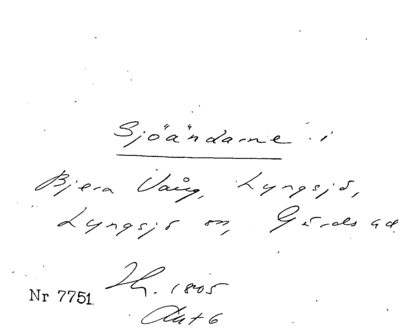 Sjöändarne i
Bjera Vång, Lyngsjö,
Lyngsjö sn, Gärds hd.
Nr 7751